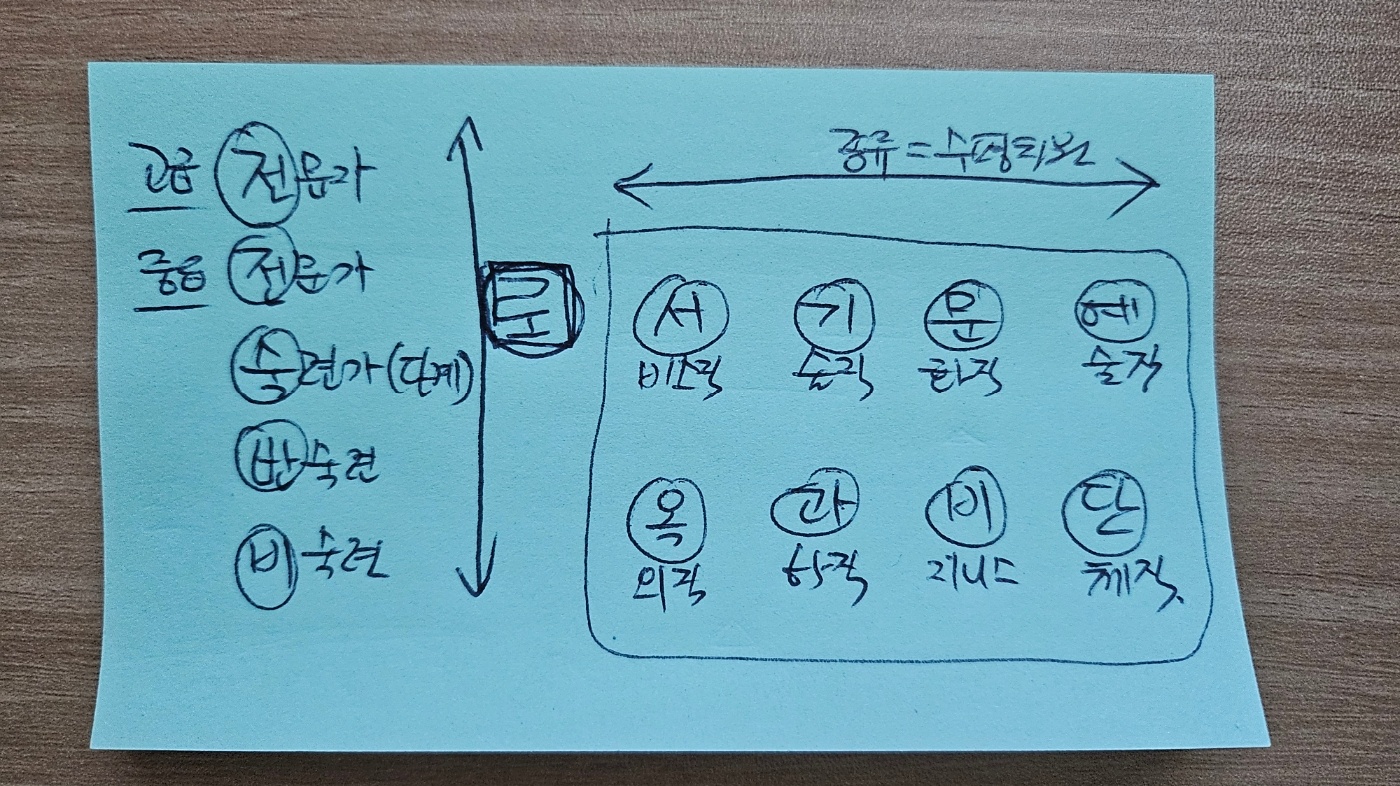 고급 전문가
중급 전문가
숙련가(단계)
반숙련
비숙련
로
종류=수평차원
서비스직
기술직
문화직
예술직
옥외직
과학직
비지니스
단체직